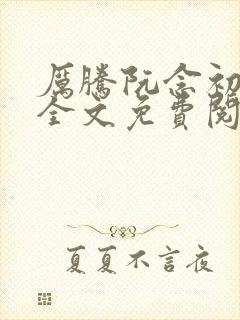 厲騰阮念初
全文免費閱
夏夏不言夜